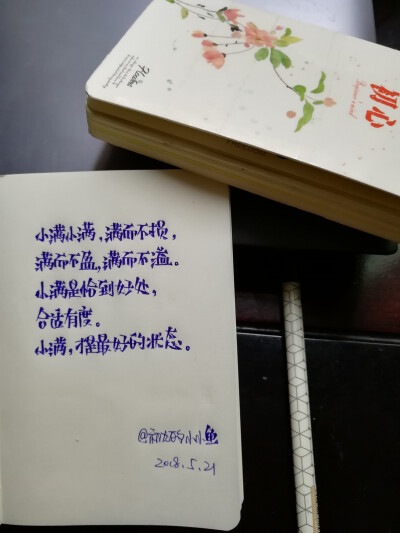 初心
小满小满,满而不损,
满而不盈,满而不溢。
小满是恰到好处,
合适有度。
小满,才是最好的状态。
2018.5.21